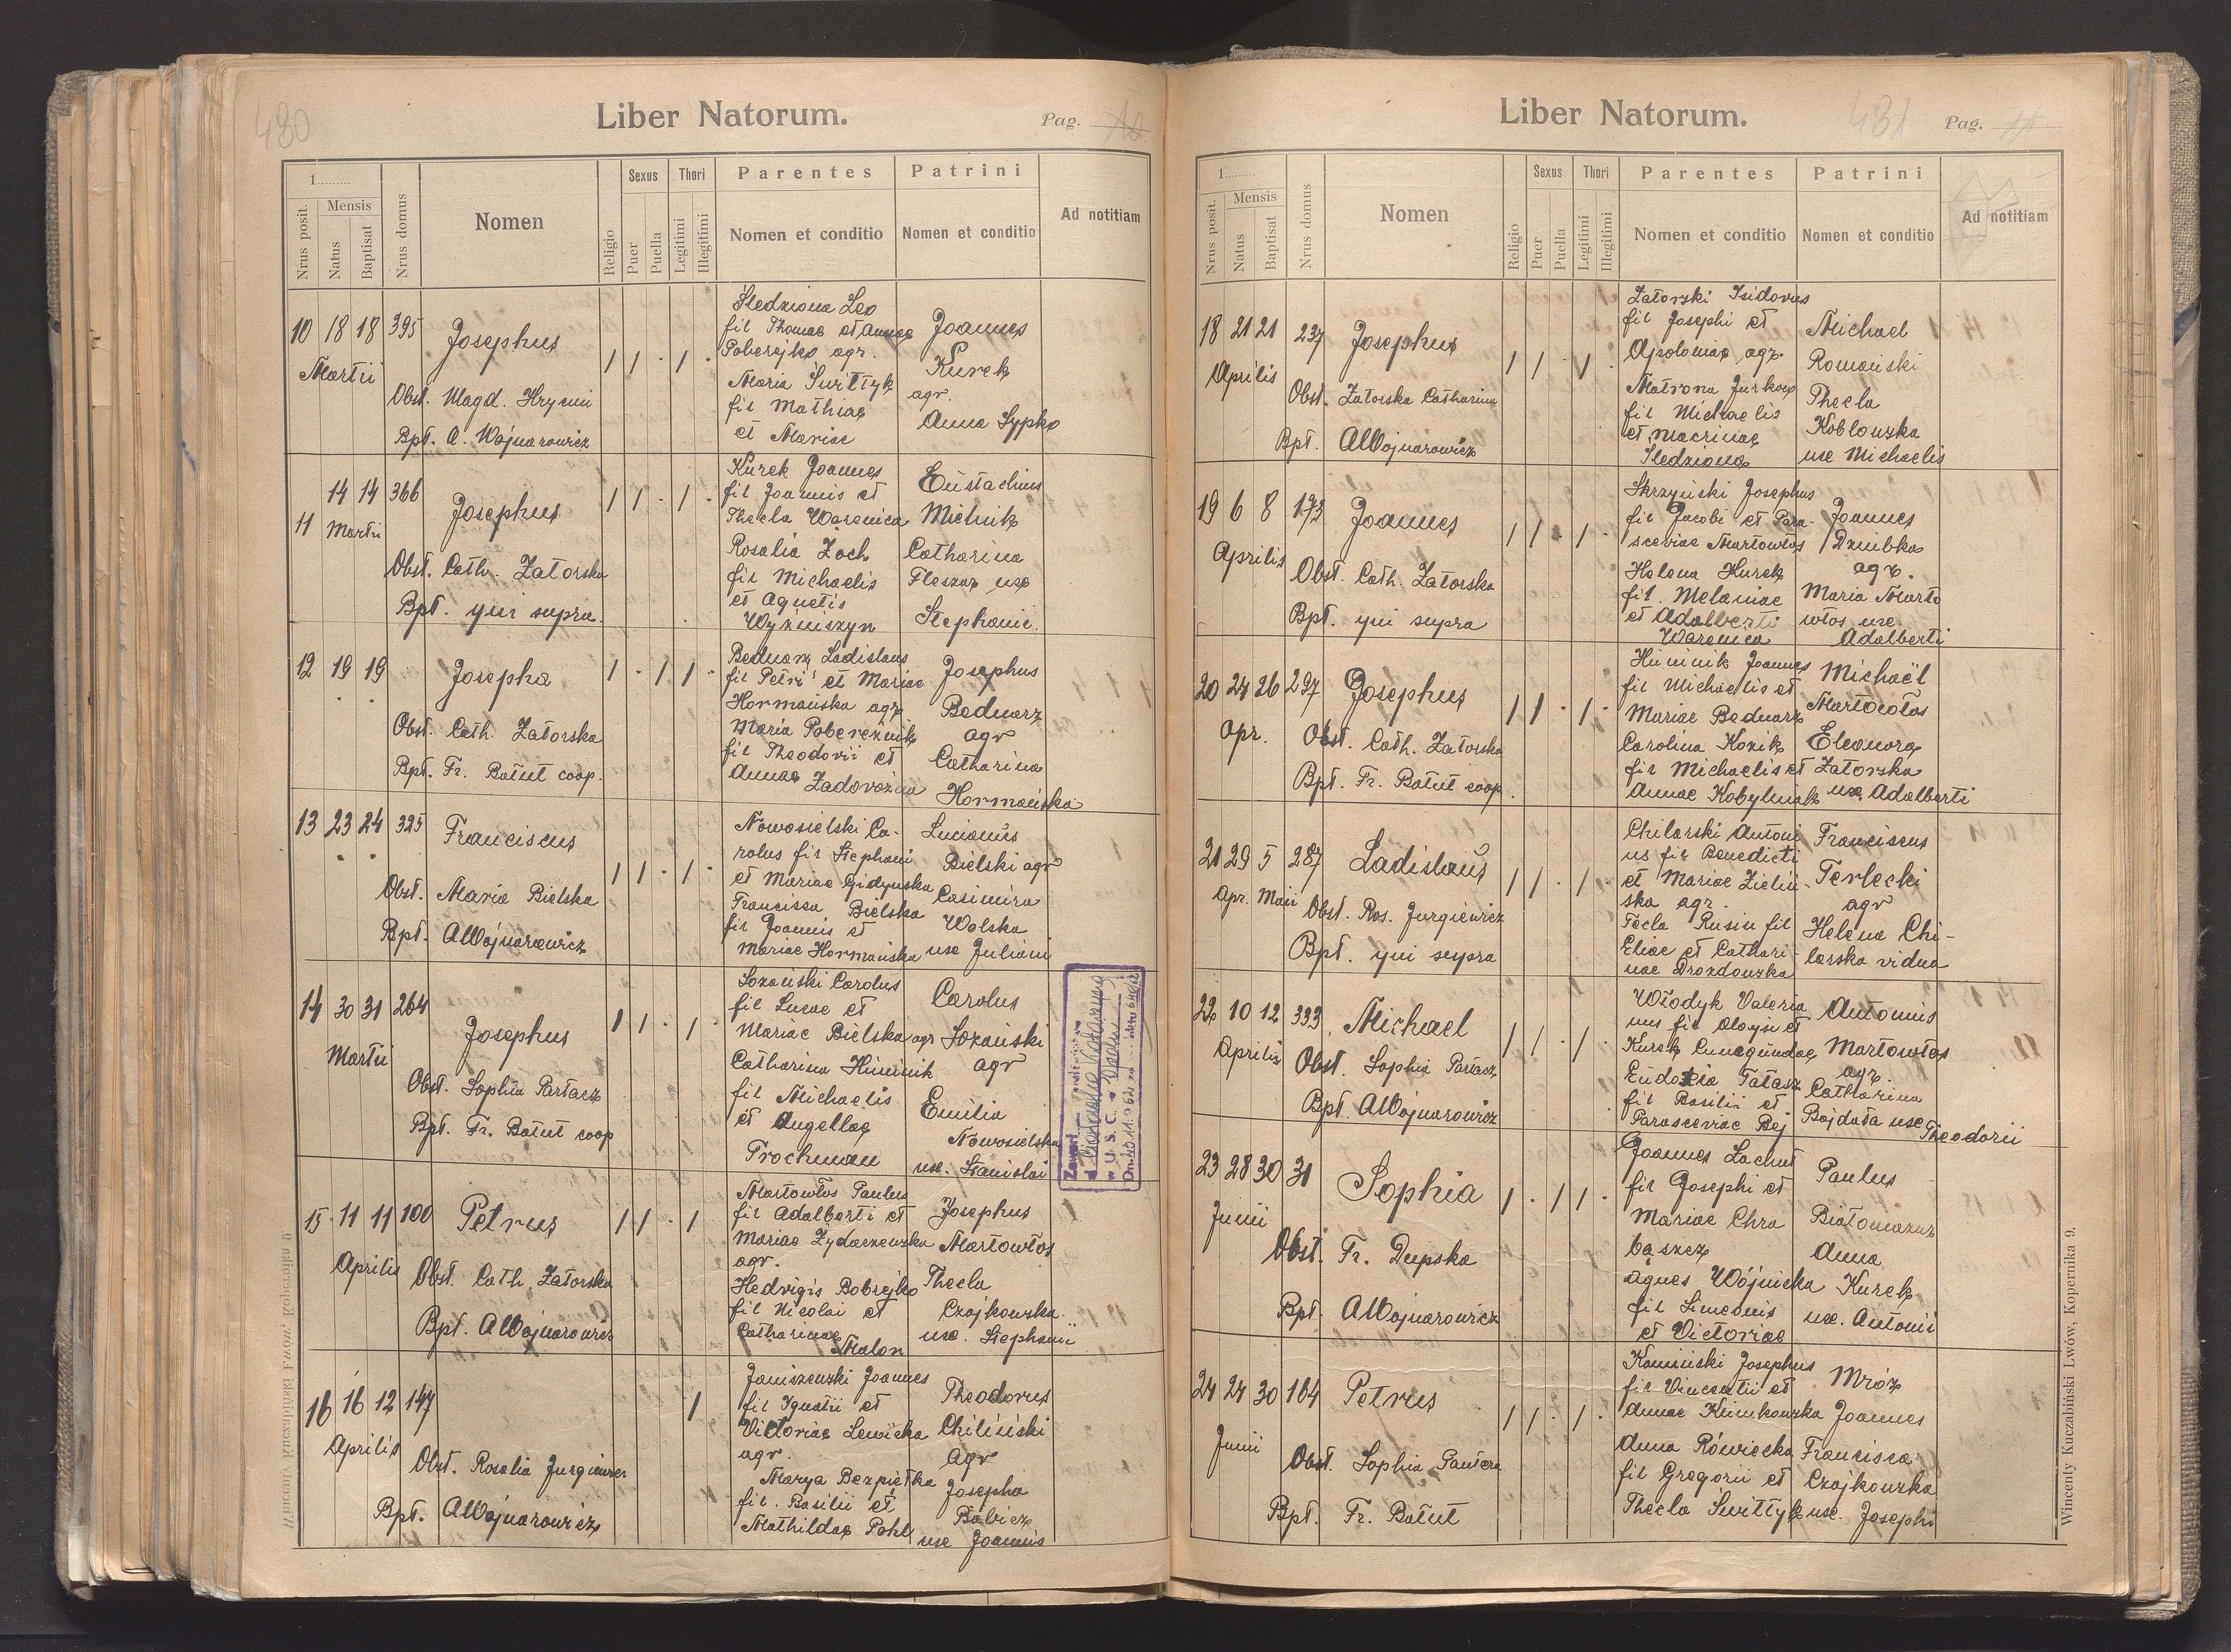 480
Liber Natorum.
Pag. 10
1.........
Nrus posit.
Mensis
Natus
Baptisat
Nrus domus
Nomen
Religio
Sexus
Puer
Puella
Thori
Legitimi
Illegitimi
Parentes
Nomen et conditio
Patrini
Nomen et conditio
Ad notitiam
10 18 18 395
Martii
Josephus
Obst. Magd. Hrycuni
Bpt. A. Wojnarowicz
1 1 . 1 .
Śledziona Leo
fil Thomae et Annae
Poberejko agr.
Maria Świstłyk
fil Mathiae
et Mariae
Joannes
Kurek
agr.
Anna Sypko
11 14 14 366
Martii
Josephus
Obst. Cath. Zatorska
Bpt. qui supra.
1 1 . 1 .
Kurek Joannes
fil Joannis et
Thecla Warenica
Rosalia Zoch
fil Michaelis
et Agnetis
Wyżniszyn
Eustachius
Michnik
Catharina
Fleszar uxe
Stephani
12 19 19
Josepha
Obst. Cath. Zatorska
Bpt. Fr. Batut coop.
1 . 1 1 .
Bednarz Ladislaus
fil Petri et Mariae
Hormańska agr
Maria Pobereżnik
fil Theodorii et
Annae Zadorożna
Josephus
Bednarz
agr
Catharina
Hormańska
13 23 24 325
Franciscus
Obst. Maria Bielska
Bpt. AWojnarowicz
1 1 . 1 .
Nowosielski Ca-
rolus fil Stephani
et Mariae Gidyńska
Francisca Bielska
fil Joannis et
Mariae Hormańska
Lucianus
Bielski agr
Casimira
Wolska
uxe Juliani
14 30 31 264
Martii
Josephus
Obst. Sophia Partacz
Bpt. Fr. Batut coop
1 1 . 1 .
Łozański Carolus
fil Lucae et
Mariae Bielska agr
Catharina Huninik
fil Michaelis
et Angellae
Prochman
Carolus
Łozański
agr
Emilia
Nowosielska
uxe. Stanislai
w U. S. C.
15 11 11 100
Aprilis
Petrus
Obst. Cath. Zatorska
Bpt. AWojnarowicz
1 1 . 1
Martowłos Paulus
fil Adalberti et
Mariae Żydaczewska
agr.
Hedvigis Bobrejko
fil Nicolai et
Catharinae
Malon
Josephus
Martowłos
Thecla
Czajkowska
uxe. Stephanii
16 16 12 147
Aprilis
Obst. Rosalia Jurgiewicz
Bpt. AWojnarowicz
1
Janiszewski Joannes
fil Ignatii et
Victoriae Lewicka
agr.
Marya Bezpiełka
fil. Basilii et
Mathildae Pohl
Theodorus
Chiliński
agr
Josepha
Babicz
uxe Joannis
Liber Natorum.
481
Pag. 11
1.........
Nrus posit.
Mensis
Natus
Baptisat
Nrus domus
Nomen
Religio
Sexus
Puer
Puella
Thori
Legitimi
Illegitimi
Parentes
Nomen et conditio
Patrini
Nomen et conditio
Ad notitiam
18 21 21 237
Aprilis
Josephus
Obst. Zatorska Catharina
Bpt. AWojnarowicz
1 1 . 1 .
Zatorski Isidorus
fil Josephi et
Apoloniae agr.
Matrona Jurkow
fil Michaelis
et Macrinae
Śledziona
Michael
Romański
Thecla
Kobłowska
uxe Michaelis
19 6 8 173
Aprilis
Joannes
Obst. Cath. Zatorska
Bpt. qui supra
1 1 . 1 .
Skrzyński Josephus
fil Jacobi et Para-
sceviae Martowłos
Helena Kurek
fil. Melaniae
et Adalberti
Warenica
Joannes
Dziubka
agr.
Maria Marto
włos uxe.
Adalberti
20 24 26 297
Apr.
Josephus
Obst. Cath. Zatorska
Bpt. Fr. Batut coop.
1 1 . 1 .
Huninik Joannes
fil Michaelis et
Mariae Bednarz
Carolina Kozik
fil Michaelis et
Annae Kobylniak
Michaël
Martowłos
Eleonora
Zatorska
uxe. Adalberti
21 29 5 287
Apr. Maii
Ladislaus
Obst. Ros. Jurgiewicz
Bpt. qui supra
1 1 . 1 .
Chilarski Antoni
us fil Benedicti
et Mariae Zieliń-
ska agr.
Tecla Rusin fil
Eliae et Cathari-
nae Drozdowska
Franciscus
Terlecki
agr
Helena Chi-
larska vidua
22 10 12 333
Aprilis
Michael
Obst. Sophia Partacz
Bpt. AWojnarowicz
1 1 . 1 .
Włodyk Valeria
nus fil Aloysii et
Kurek Cunegundae
Eudoxia Tatasz
fil Basilii et
Parasceviae Bej
Antonius
Martowłos
agr.
Catharina
Bajdała uxe
Theodorii
23 28 30 31
Junii
Sophia
Obst. Fr. Dupska
Bpt. AWojnarowicz
1 . 1 1 .
Joannes Lachut
fil Josephi et
Mariae Chra
bąszcz
Agnes Wójnicka
fil Simeonis
et Victoriae
Paulus
Białomazur
Anna
Kurek
uxe. Antonii
24 24 30 184
Junii
Petrus
Obst. Sophia Pantera
Bpt. Fr. Batut
1 1 . 1 .
Kamiński Josephus
fil Vincentii et
Annae Klimkowska
Anna Rówiecka
fil Gregorii et
Thecla Świstłyk
Mróz
Joannes
Francisca
Czajkowska
uxe. Josephi
Wincenty Kuczabiński Lwów, Kopernika 9.